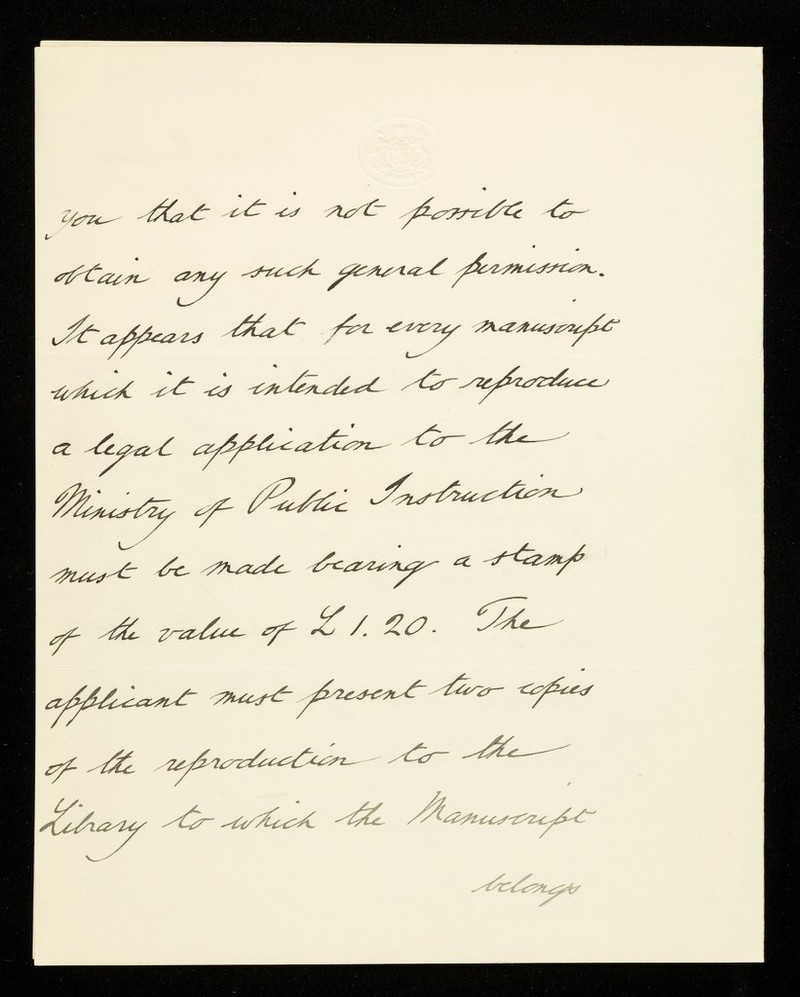 you that it is not possible to
obtain any such general permission.
It appears that for every manuscript
which it is intended to reproduce
a legal application to the
Ministry of Public Instruction
must be made bearing a stamp
of the value of £ 1. 20. The
applicant must present two copies
of the reproduction to the
Library to which the Manuscript
belongs